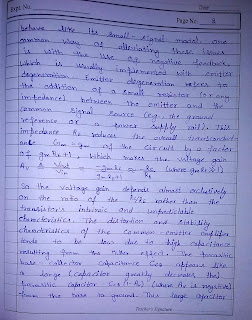 Expt. No.
Page No. 8
behave like its small-signal model. one
common way of alleviating these issues
is with the use of negative feedback,
which is usually implemented with emitter
degeneration. Emitter degeneration refers to
the addition of a small resistor (or any
impedance) between the emitter and the
common signal source (e.g. the ground
reference or a power supply rail). This
impedance RE reduces the overall transconductance
Gm = gm of the circuit by a factor
of gm RE+1, which makes the voltage gain
Av ≜ Vout/Vin ≈ -gmRC/gmRE+1 ≈ -RC/RE (where gmRE≫1)
So the voltage gain depends almost exclusively
on the ratio of the RC/RE rather than the
transistor's intrinsic and unpredictable
characteristics. The distortion and stability
characteristics of the common-emitter amplifier
tends to be low due to high capacitance
resulting from the Miller effect. The parasitic
base collector capacitance CCB appears like
a large capacitor greatly decreases the
parasitic capacitor CCB(1-Av) (where Av is negative)
from the base to ground. This large capacitor
Teacher's Signature